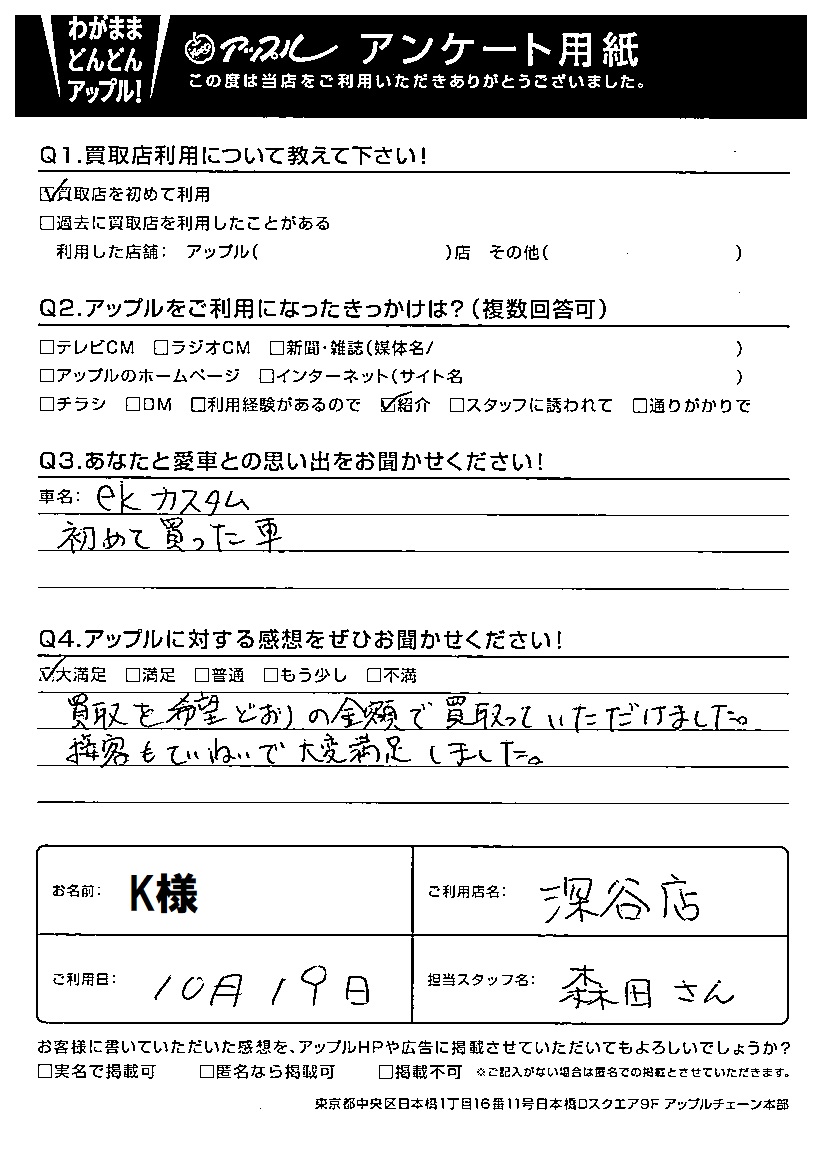 わがまま
どんどん
アップル!
アップル アンケート用紙
この度は当店をご利用いただきありがとうございました。
Q1.買取店利用について教えて下さい!
☑買取店を初めて利用
□過去に買取店を利用したことがある
利用した店舗: アップル( )店 その他( )
Q2.アップルをご利用になったきっかけは?(複数回答可)
□テレビCM □ラジオCM □新聞・雑誌(媒体名/ )
□アップルのホームページ □インターネット(サイト名 )
□チラシ □DM □利用経験があるので ☑紹介 □スタッフに誘われて □通りがかりで
Q3.あなたと愛車との思い出をお聞かせください!
車名: ekカスタム
初めて買った車
Q4.アップルに対する感想をぜひお聞かせください!
☑大満足 □満足 □普通 □もう少し □不満
買取を希望どおりの金額で買取っていただけました。
接客もていねいで大変満足しました。
お名前: K様
ご利用店名: 深谷店
ご利用日: 10月19日
担当スタッフ名: 森田さん
お客様に書いていただいた感想を、アップルHPや広告に掲載させていただいてもよろしいでしょうか?
□実名で掲載可 □匿名なら掲載可 □掲載不可 ※ご記入がない場合は匿名での掲載とさせていただきます。
東京都中央区日本橋1丁目16番11号日本橋Dスクエア9F アップルチェーン本部